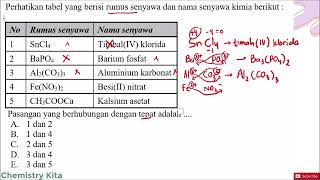 Perhatikan tabel yang berisi rumus senyawa dan nama senyawa kimia berikut :
No Rumus senyawa Nama senyawa
1 SnCl4 Timbal(IV) klorida
2 BaPO4 Barium fosfat
3 Al2(CO3)3 Aluminium karbonat
4 Fe(NO3)2 Besi(II) nitrat
5 CH3COOCa Kalsium asetat
Pasangan yang berhubungan dengan tepat adalah ....
A. 1 dan 2
B. 1 dan 4
C. 2 dan 5
D. 3 dan 4
E. 3 dan 5
SnCl4 → timah(IV) klorida
→ Ba3(PO4)2
→ Al2(CO3)3
Chemistry Kita
SUBSCRIBE